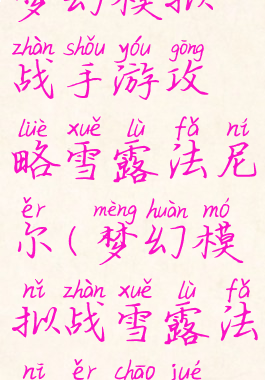 梦幻模拟
zhàn shǒu yóu gōng
战手游攻
lüè xuě lù fǎ ní
略雪露法尼
ěr mèng huàn mó
尔(梦幻模
nǐ zhàn xuě lù fǎ
拟战雪露法
ní ěr chāo jué